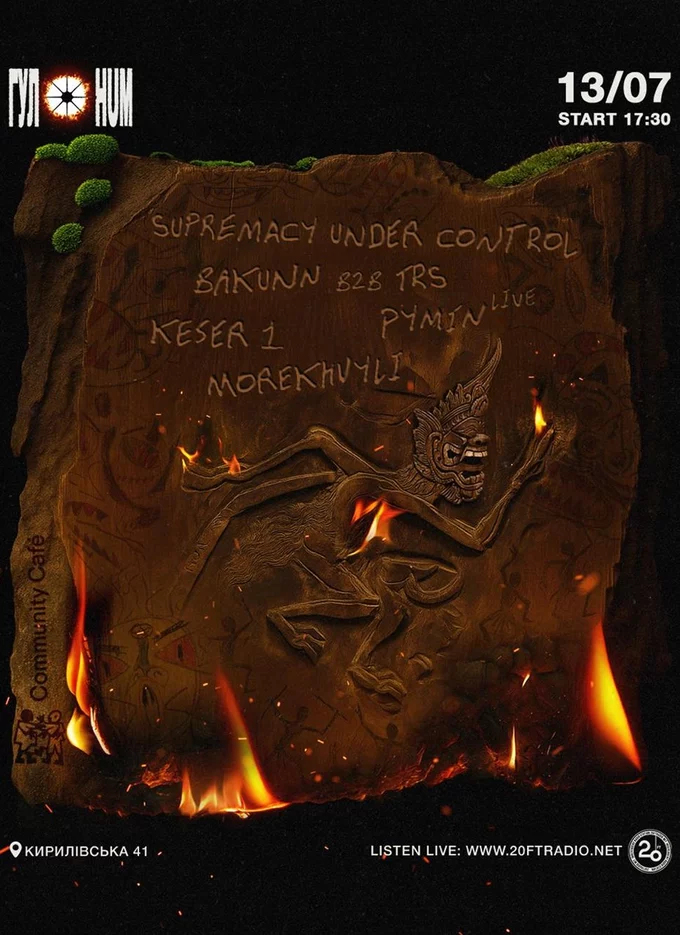 ГУЛ HUM
13/07
START 17:30
SUPREMACY UNDER CONTROL
BAKUNN B2B TRS
KESER 1 PYMIN LIVE
MOREKHVYLI
Community Café
КИРИЛІВСЬКА 41
LISTEN LIVE: WWW.20FTRADIO.NET
20